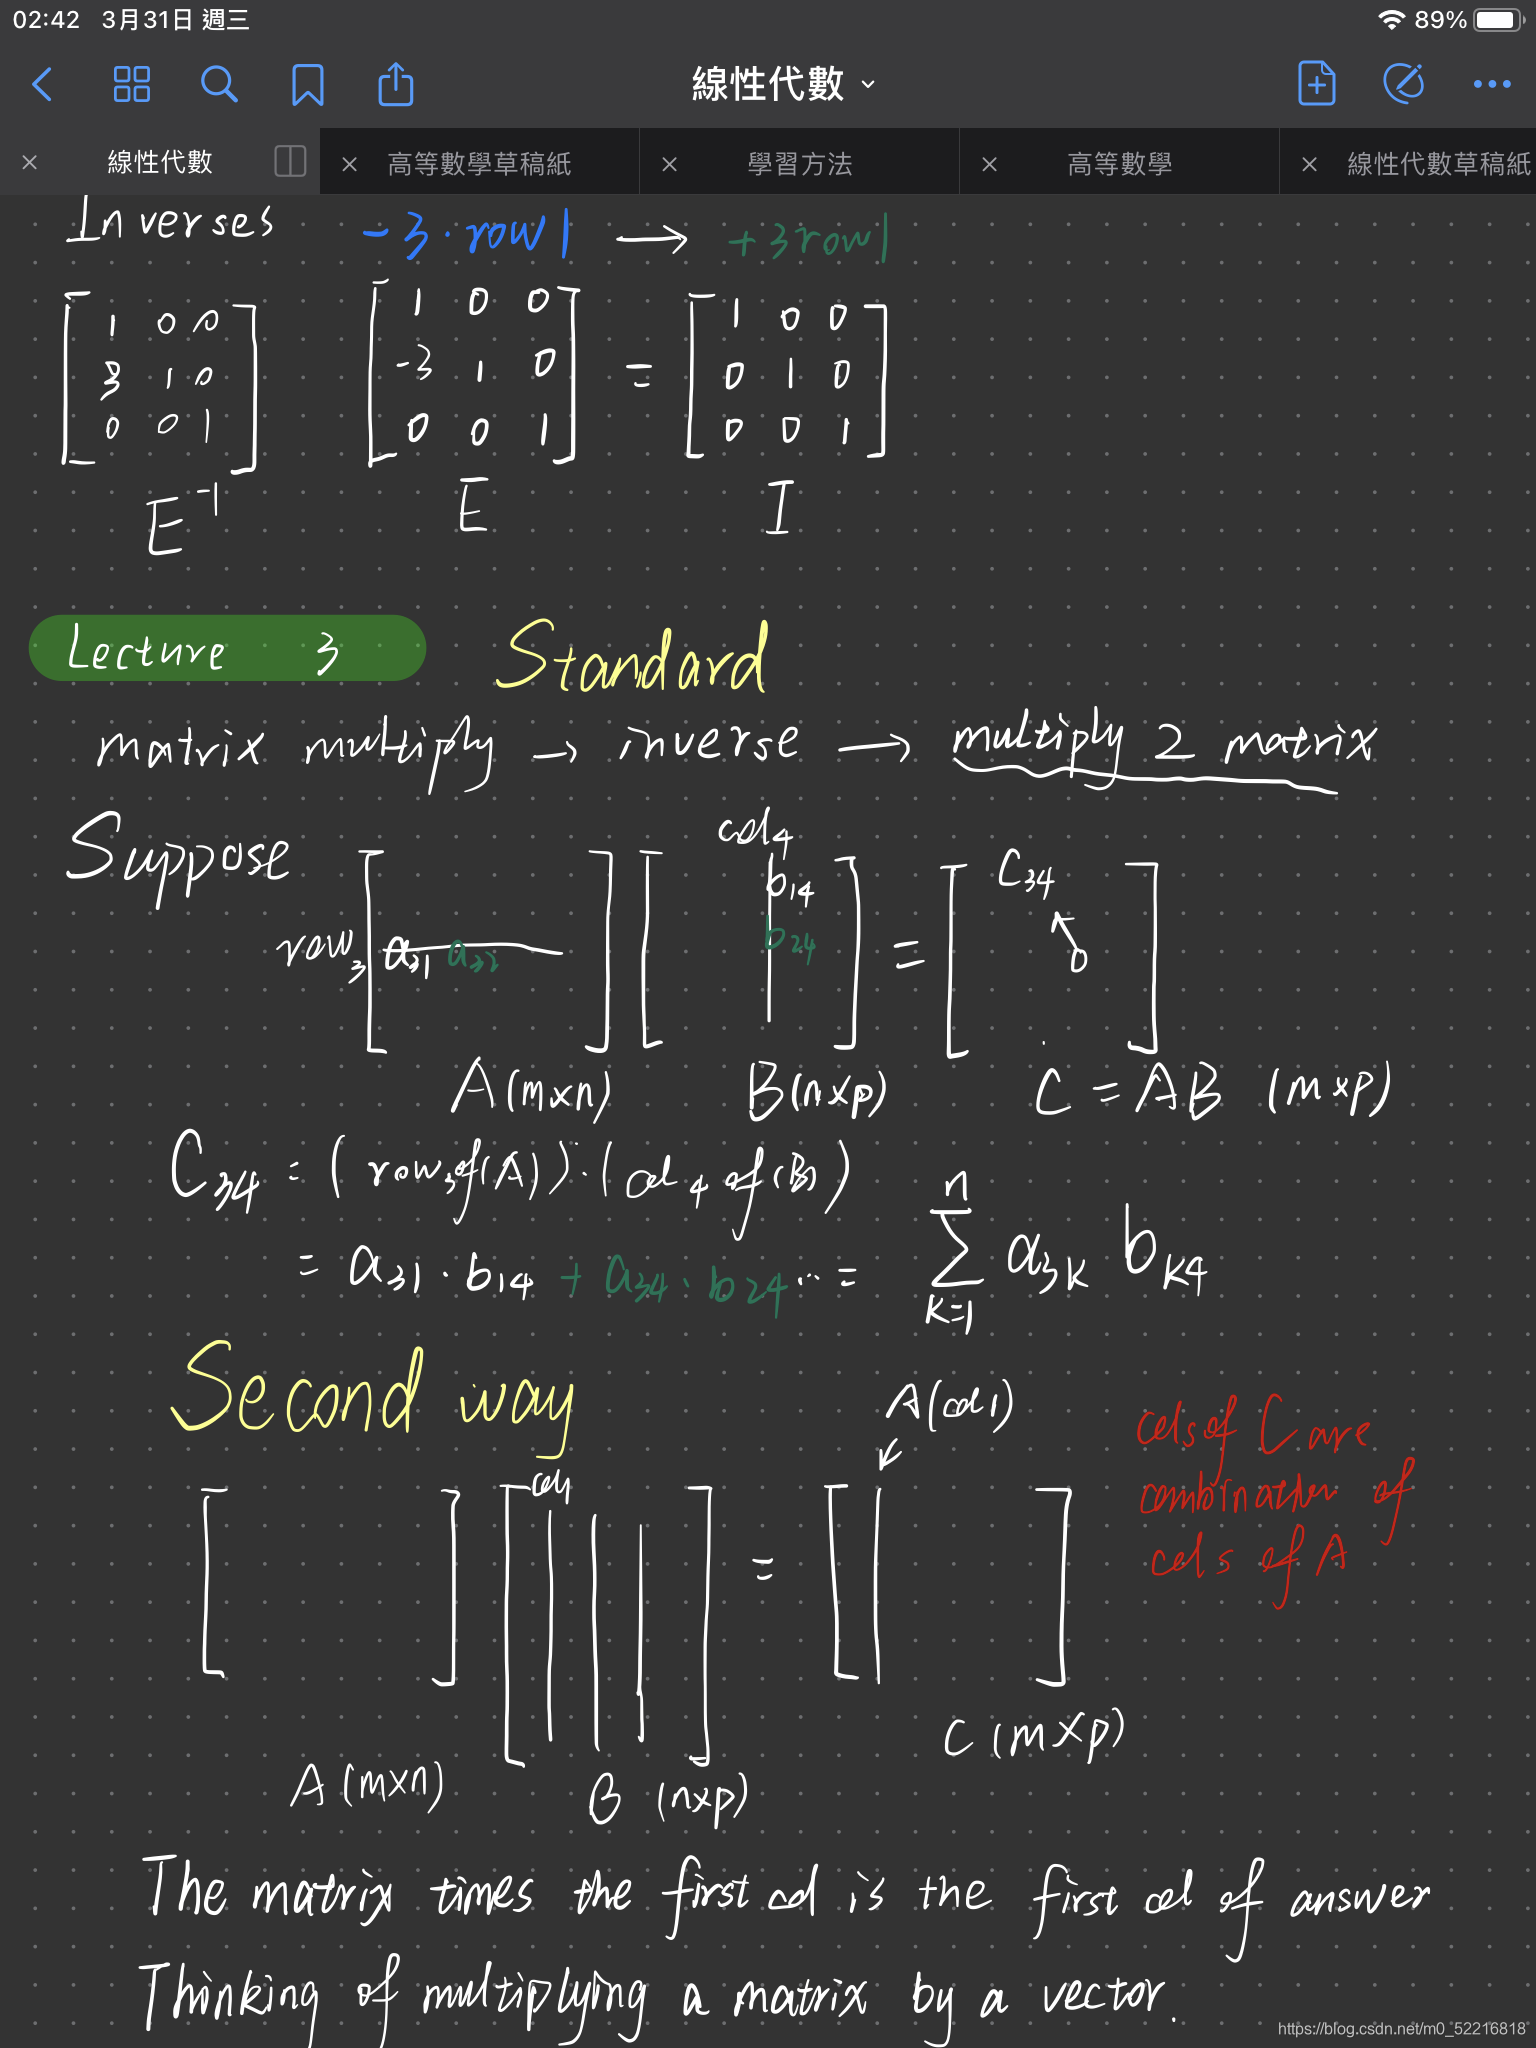 02:42 3月31日 週三 89%
線性代數
線性代數 高等數學草稿紙 學習方法 高等數學 線性代數草稿紙
Inverses -3·row1 → +3row1
1 0 0 1 0 0 1 0 0
3 1 0 -3 1 0 = 0 1 0
0 0 1 0 0 1 0 0 1
E⁻¹ E I
Lecture 3 Standard
matrix multiply → inverse → multiply 2 matrix
Suppose col4
b14 C34
row3 a31 a32 b24 =
A(m×n) B(n×p) C = AB (m×p)
C34 = (row3 of(A))·(col4 of(B))
= a31·b14 + a34·b24 ... = n∑k=1 a3k bk4
Second way
A(col1)
cols of C are
combination of
cols of A
col1
=
C(m×p)
A(m×n) B(n×p)
The matrix times the first col is the first col of answer
Thinking of multiplying a matrix by a vector.
https://blog.csdn.net/m0_52216818